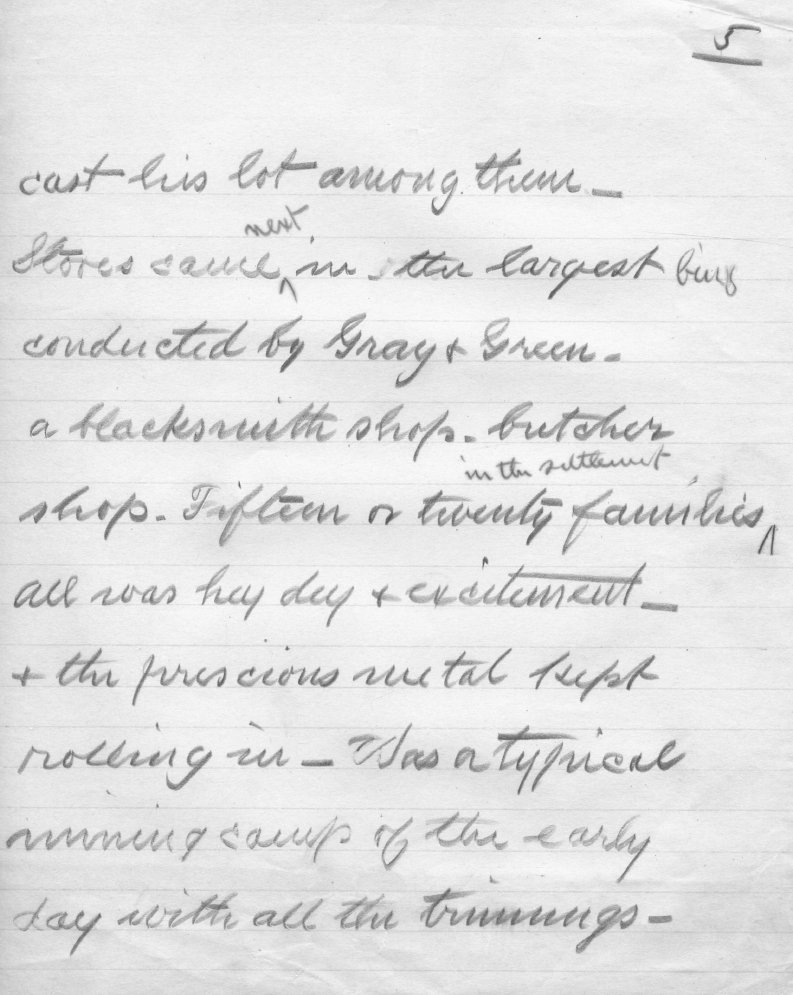 5
cast his lot among them -
next
Stores came ^ in the largest bing
conducted by Gray & Green -
a blacksmith shop - butcher
in the settlement
shop - Fifteen or twenty families ^
all was hey dey & excitement -
& the prescious metal kept
rolling in - Was a typical
mining camp of the early
day with all the trimmings -